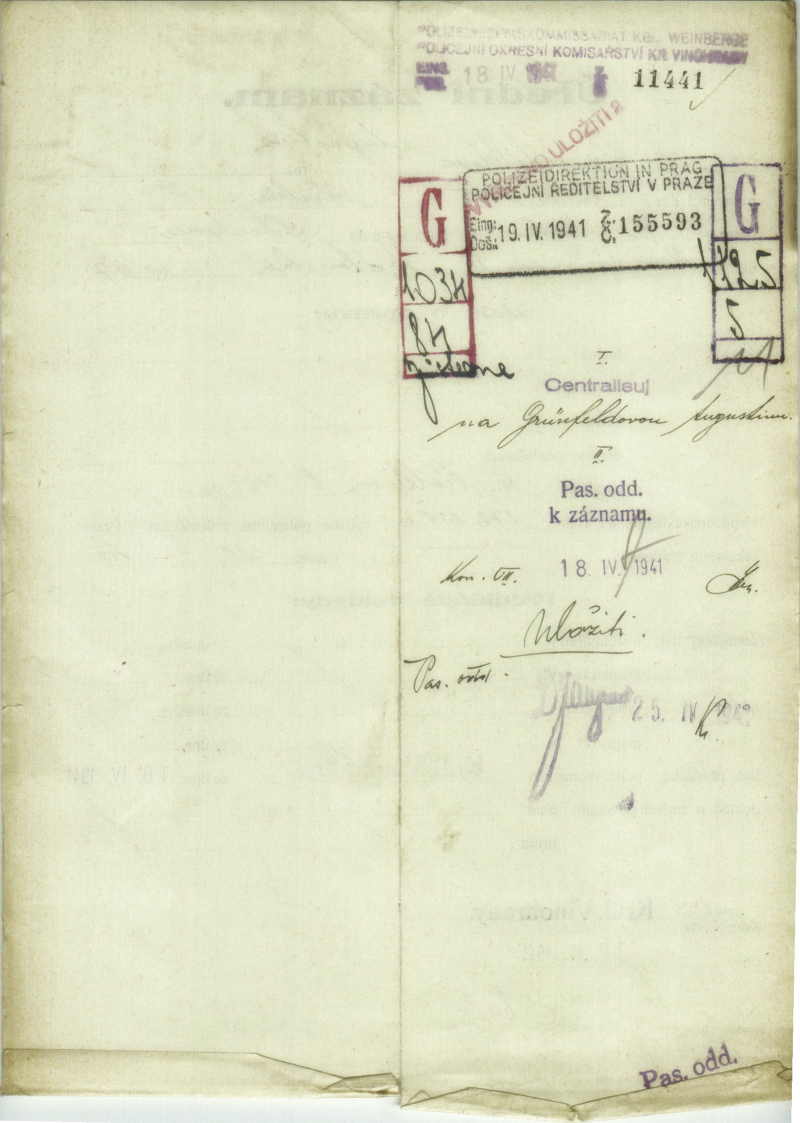 POLIZEIBEZIRKSKOMMISSARIAT KGL. WEINBERGE
POLICEJNÍ OKRESNÍ KOMISAŘSTVÍ KR. VINOHRADY
18 IV. 1941
11441
ULOŽITI
POLIZEIDIREKTION IN PRAG
POLICEJNÍ ŘEDITELSTVÍ V PRAZE
Eing.: 19. IV. 1941 Z. 155593
Doš.: Č.
G
1034
84
G
1125
5
I.
Centralisuj
na Grünfeldovou Augustinu.
II.
Pas. odd.
k záznamu.
Kon. VII. 18. IV. 1941
Uložiti.
Pas. odd.
25. IV. 194
Pas. odd.